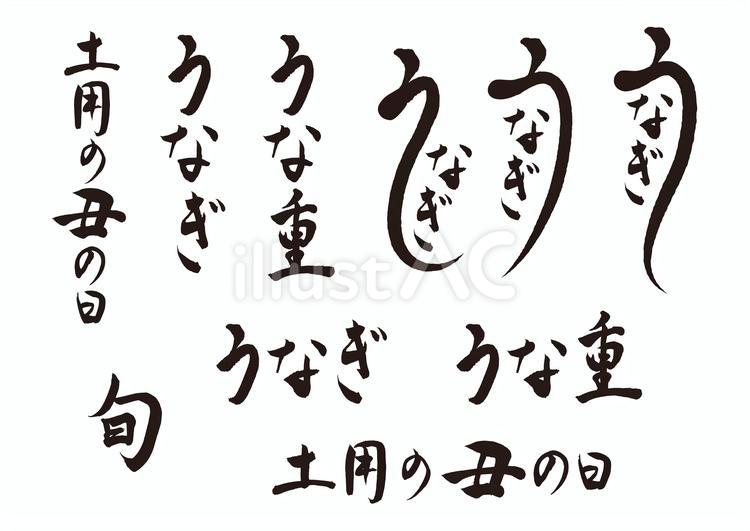 土用の丑の日
うなぎ
うな重
うなぎ
うなぎ
うなぎ
うなぎ
うな重
旬
土用の丑の日
illustAC